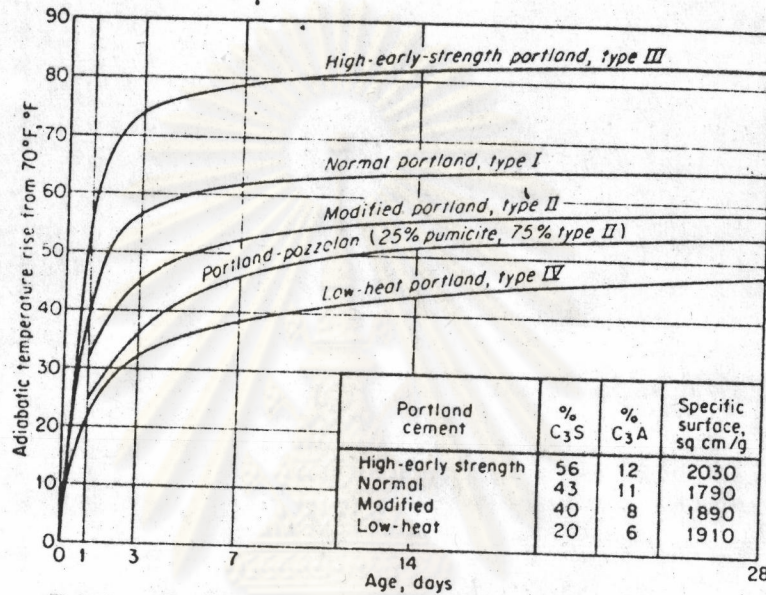 Adiabatic temperature rise from 70°F, °F
90
80
70
60
50
40
30
20
10
0
High-early-strength portland, type III
Normal portland, type I
Modified portland, type II
Portland-pozzolan (25% pumicite, 75% type II)
Low-heat portland, type IV
Portland cement | % C₃S | % C₃A | Specific surface, sq cm/g
High-early strength 56 12 2030
Normal 43 11 1790
Modified 40 8 1890
Low-heat 20 6 1910
0 1 3 7 14 28
Age, days